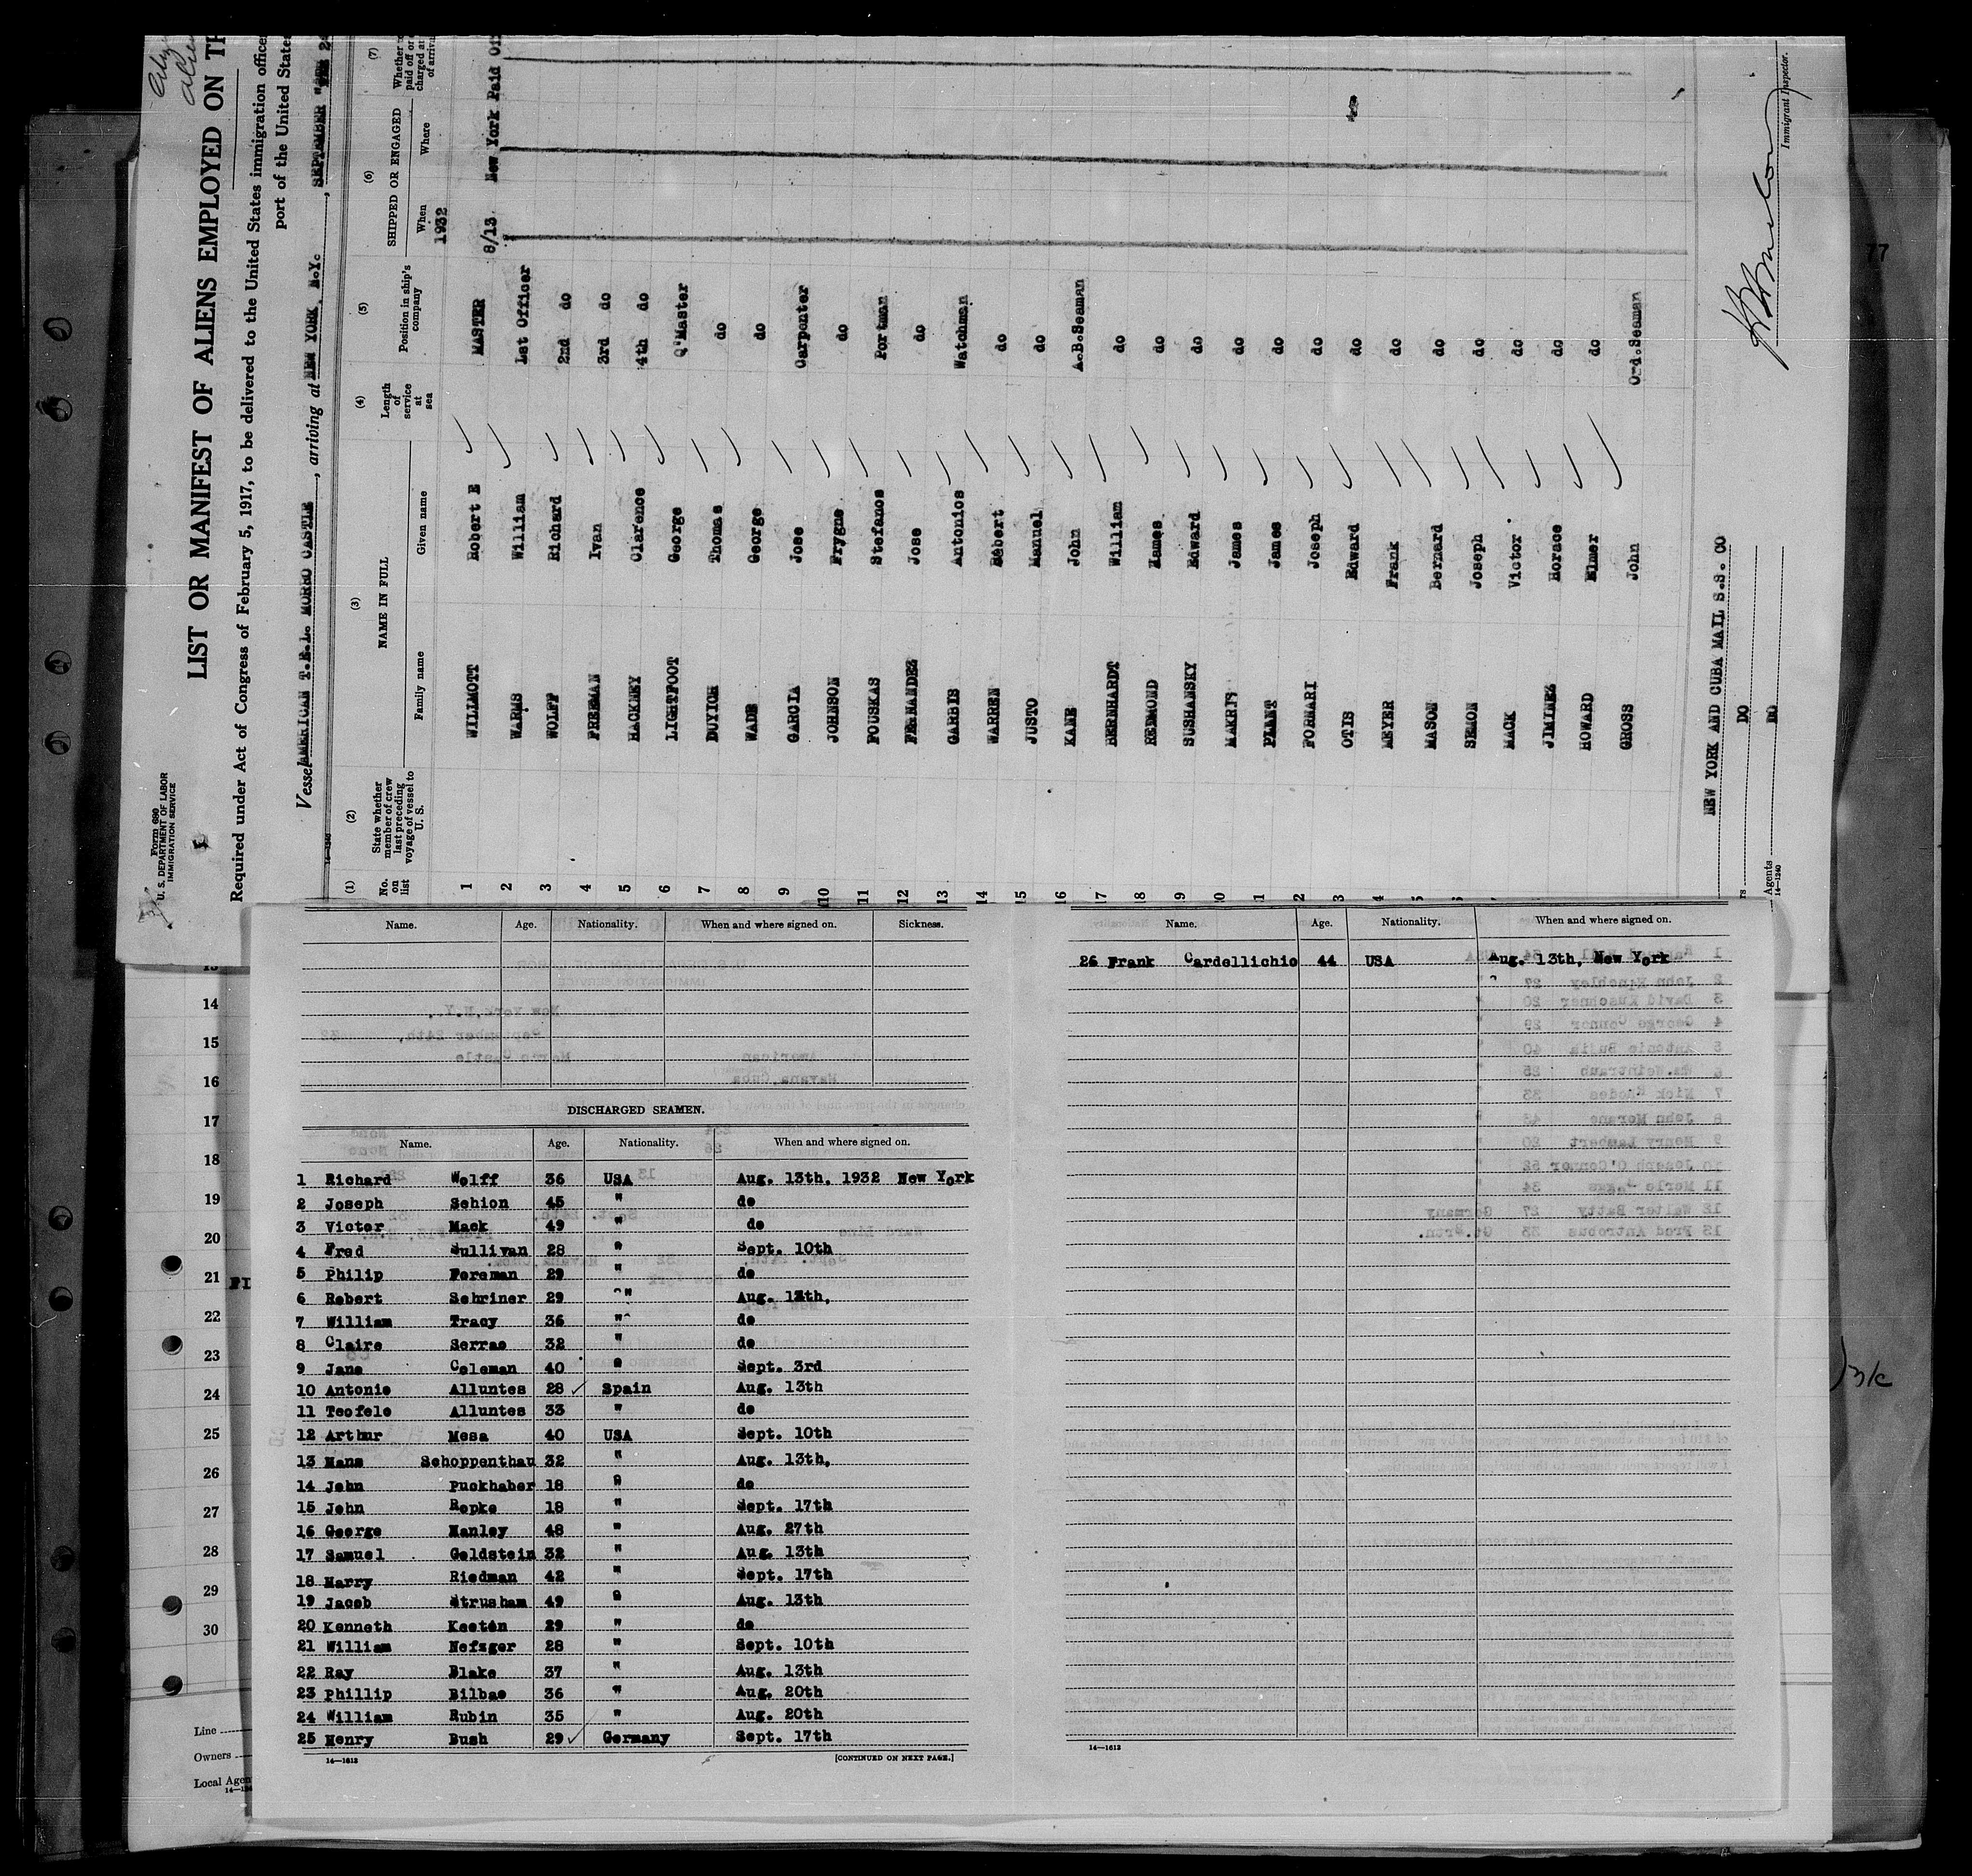 Form 680
U. S. DEPARTMENT OF LABOR
IMMIGRATION SERVICE
LIST OR MANIFEST OF ALIENS EMPLOYED ON TH
Required under Act of Congress of February 5, 1917, to be delivered to the United States immigration office
port of the United State
Vessel AMERICAN T.E.L. MORRO CASTLE, arriving at NEW YORK, N.Y., SEPTEMBER
(1) (2) (3) (4) (5) (6) (7)
No. on list
State whether member of crew last preceding voyage of vessel to U. S.
NAME IN FULL
Family name Given name
Length of service at sea
Position in ship's company
SHIPPED OR ENGAGED
When Where
Whether paid off or charged at of arriva
1932
1 WILLMOTT Robert E MASTER 8/13 New York Paid Off
2 WARMS William 1st Officer
3 WOLFF Richard 2nd do
4 FREEMAN Ivan 3rd do
5 HACKNEY Clarence 4th do
6 LIGHTFOOT George Q'Master
7 DUYION Thomas do
8 WADE George do
9 GARCIA Jose Carpenter
10 JOHNSON Frygne do
11 FOUSKAS Stefanos Portman
12 FERNANDEZ Jose do
13 GARBIS Antonios Watchman
14 WARREN Robert do
15 JUSTO Manuel do
16 KANE John A.B.Seaman
17 BERNHARDT William do
8 REDMOND James do
9 SUSHANSKY Edward do
0 MAKRIS James do
1 PLANT James do
2 FORNARI Joseph do
3 OTIS Edward do
4 MEYER Frank do
5 MASON Bernard do
SEMON Joseph do
MACK Victor do
JIMINEZ Horace do
HOWARD Elmer do
GROSS John Ord.Seaman
NEW YORK AND CUBA MAIL S.S. CO
DO
Agents DO
14—1240
Immigrant Inspector.
77
Name. Age. Nationality. When and where signed on. Sickness.
DISCHARGED SEAMEN.
Name. Age. Nationality. When and where signed on.
1 Richard Wolff 36 USA Aug. 13th, 1932 New York
2 Joseph Sehion 45 " do
3 Victor Mack 49 " do
4 Fred Sullivan 28 " Sept. 10th
5 Philip Foreman 29 " do
6 Robert Schriner 29 " Aug. 13th,
7 William Tracy 36 " do
8 Claire Serrao 32 " do
9 Jane Coleman 40 " Sept. 3rd
10 Antonio Alluntes 28 Spain Aug. 13th
11 Teofele Alluntes 33 " do
12 Arthur Mesa 40 USA Sept. 10th
13 Hans Schoppenthau 32 " Aug. 13th,
14 John Puckhaber 18 " do
15 John Repke 18 " Sept. 17th
16 George Hanley 48 " Aug. 27th
17 Samuel Goldstein 32 " Aug. 13th
18 Harry Riedman 42 " Sept. 17th
19 Jacob Strusham 49 " Aug. 13th
20 Kenneth Keeton 29 " do
21 William Nefzger 28 " Sept. 10th
22 Ray Blake 37 " Aug. 13th
23 Phillip Bilbao 36 " Aug. 20th
24 William Rubin 35 " Aug. 20th
25 Henry Bush 29 Germany Sept. 17th
14—1613
[CONTINUED ON NEXT PAGE.]
Name. Age. Nationality. When and where signed on.
26 Frank Cardellichio 44 USA Aug. 13th, New York
14—1613
14
15
16
17
18
19
20
21 FI
22
23
24
25
26
27
28
29
30
Line
Owners
Local Agen